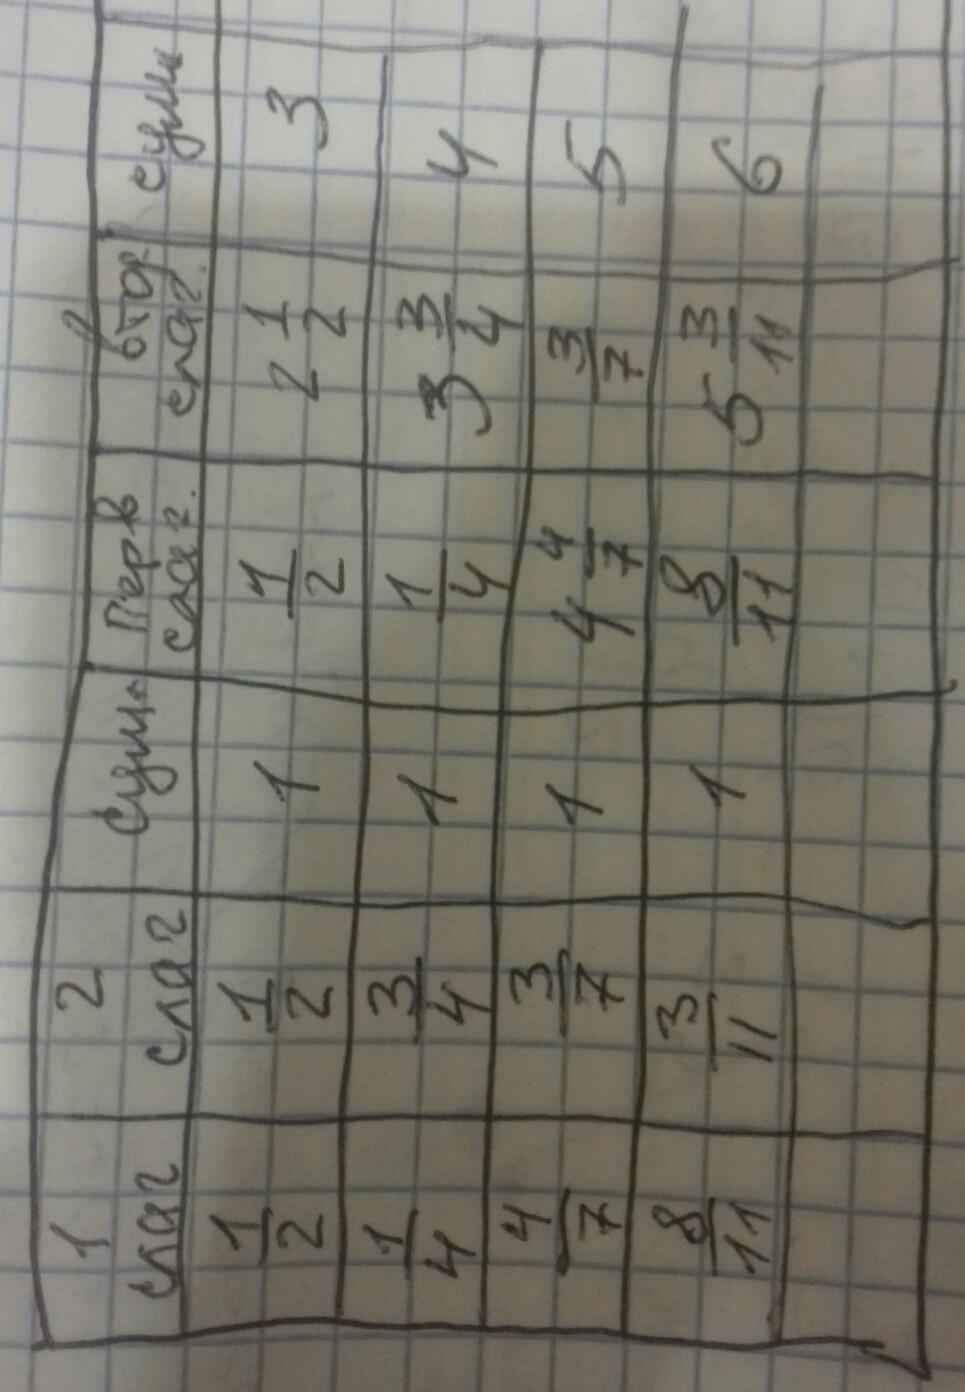 1 слаг	2 слаг	сумм	Перв слаг.	втор слаг.	сумм
1/2	1/2	1	1/2	2 1/2	3
1/4	3/4	1	1/4	3 3/4	4
4/7	3/7	1	4 4/7	3/7	5
8/11	3/11	1	8/11	5 3/11	6